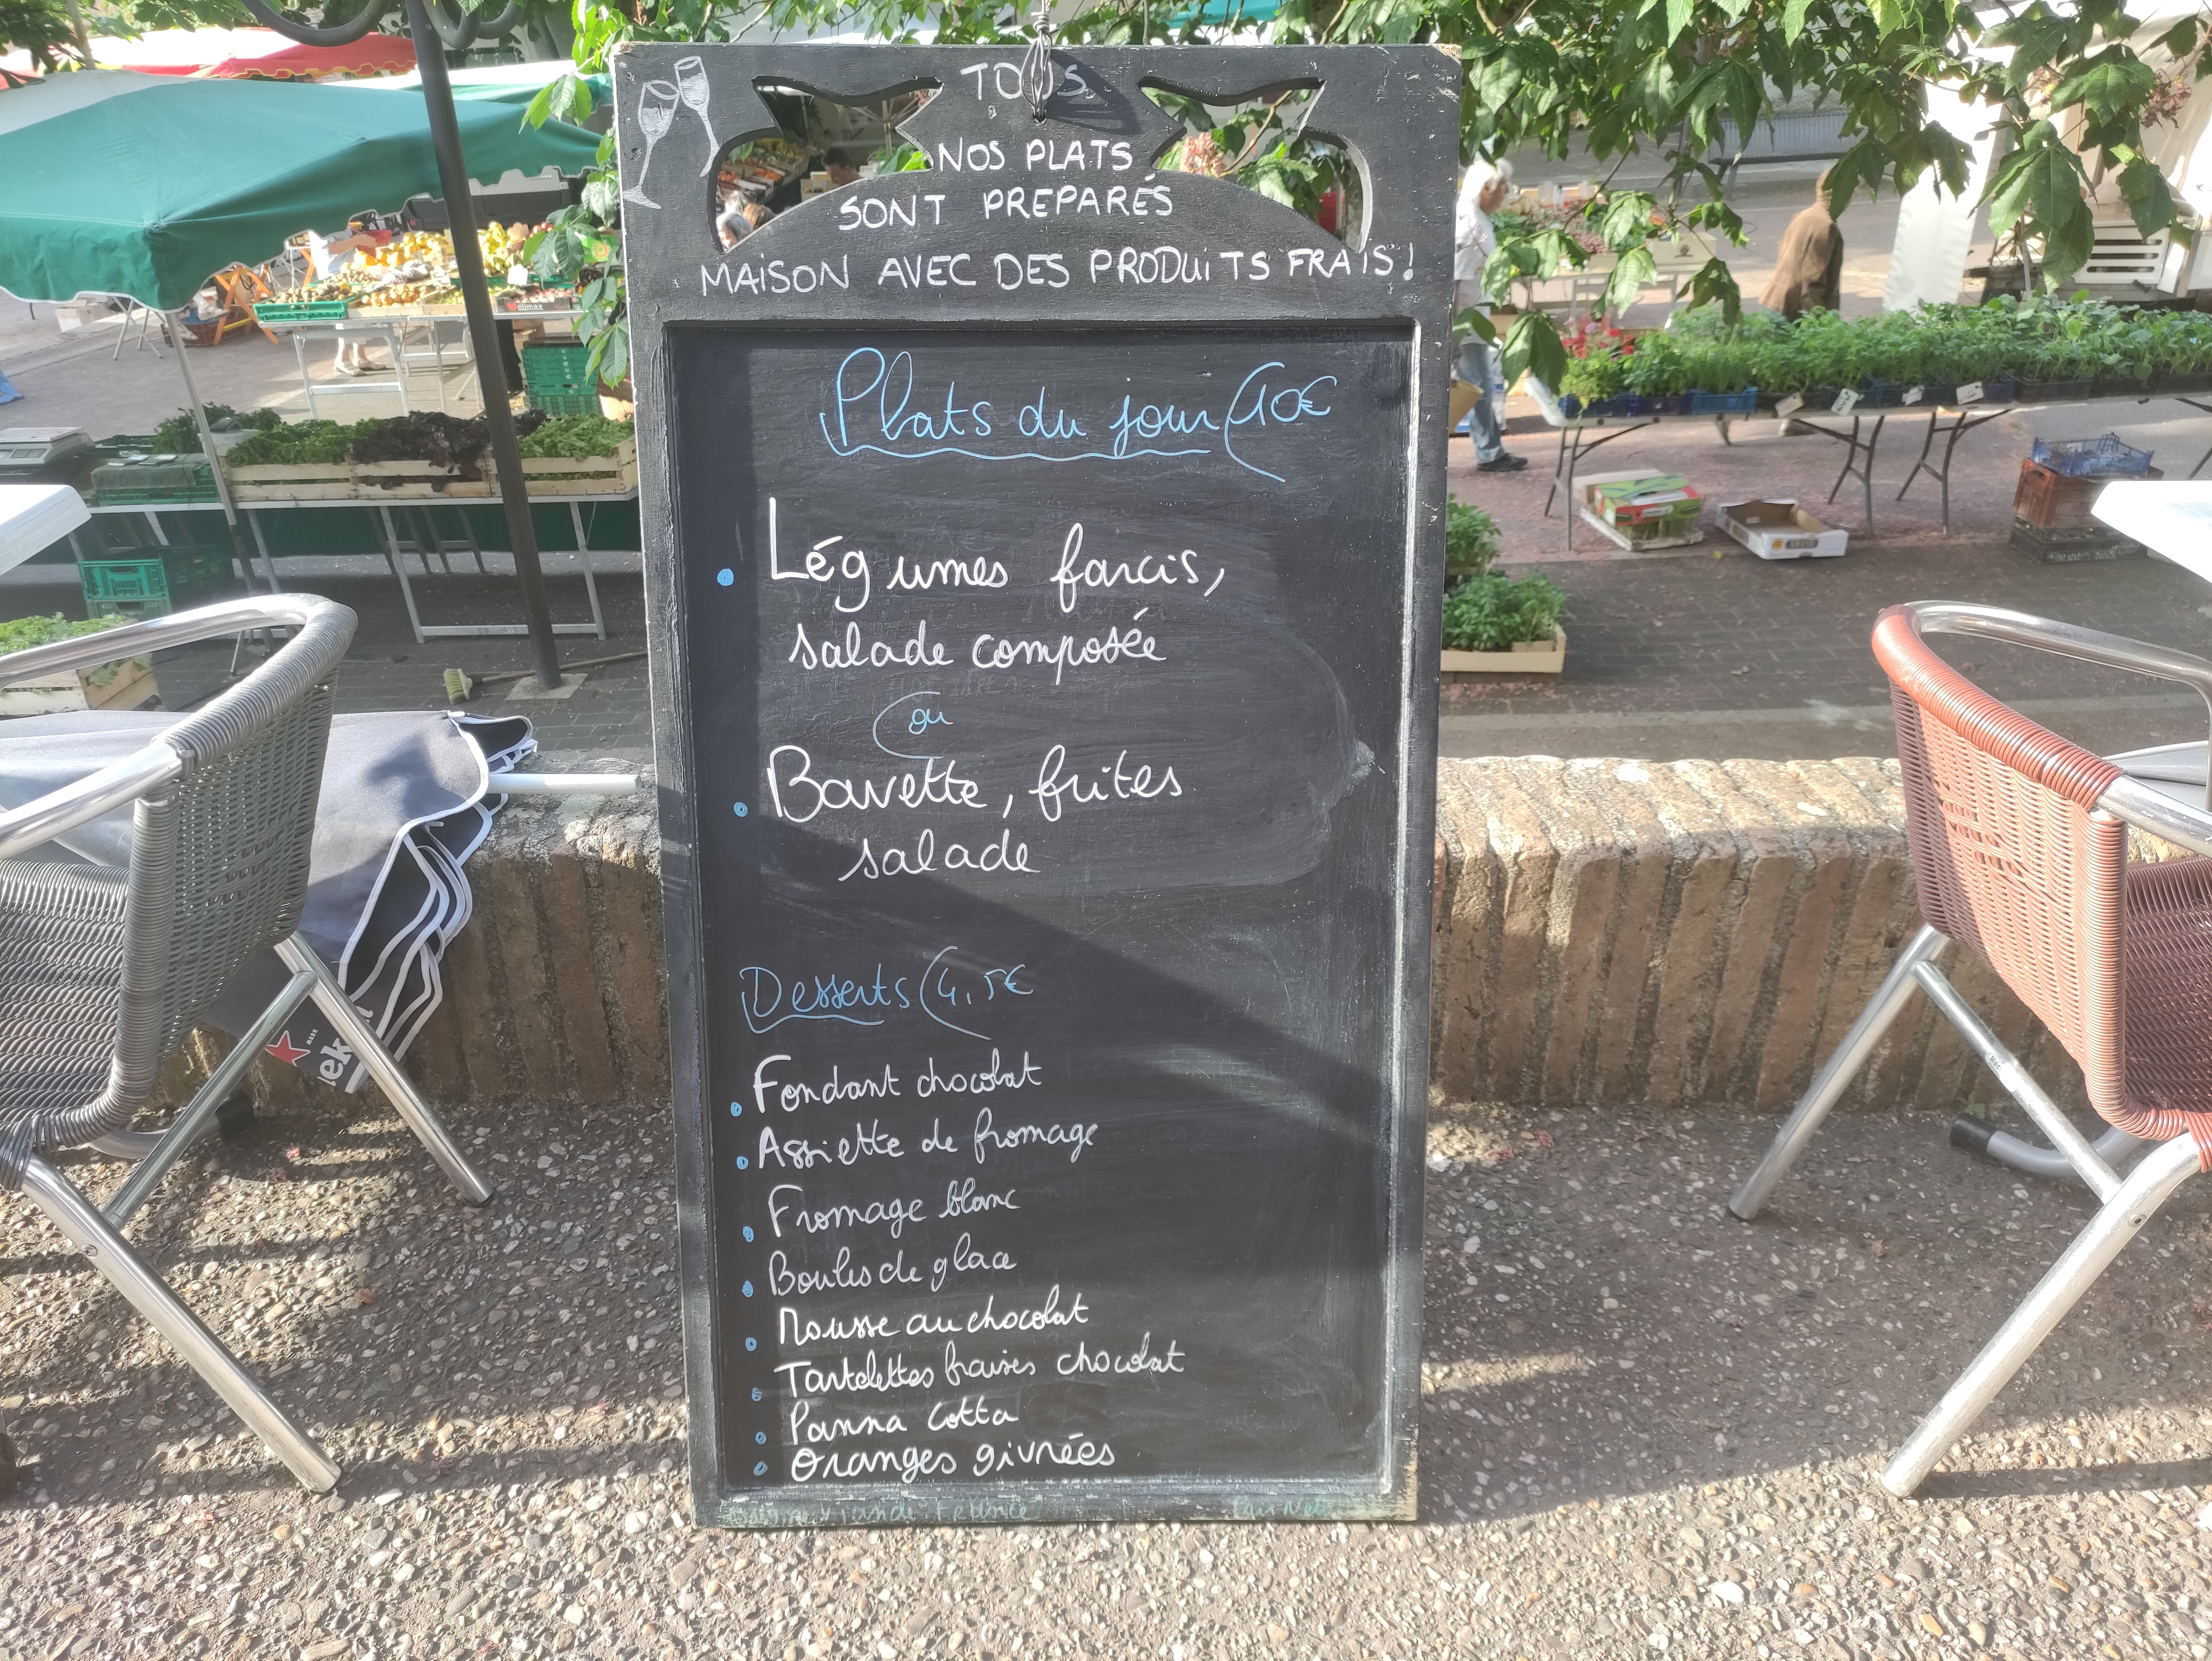 TOUS
NOS PLATS
SONT PREPARÉS
MAISON AVEC DES PRODUITS FRAIS!
Plats du jour 10€
Légumes farcis,
salade composée
ou
Bavette, frites
salade
Desserts 4,5€
Fondant chocolat
Assiette de fromage
Fromage blanc
Boules de glace
Mousse au chocolat
Tartelettes fraises chocolat
Panna Cotta
Oranges givrées
Viande France
climax